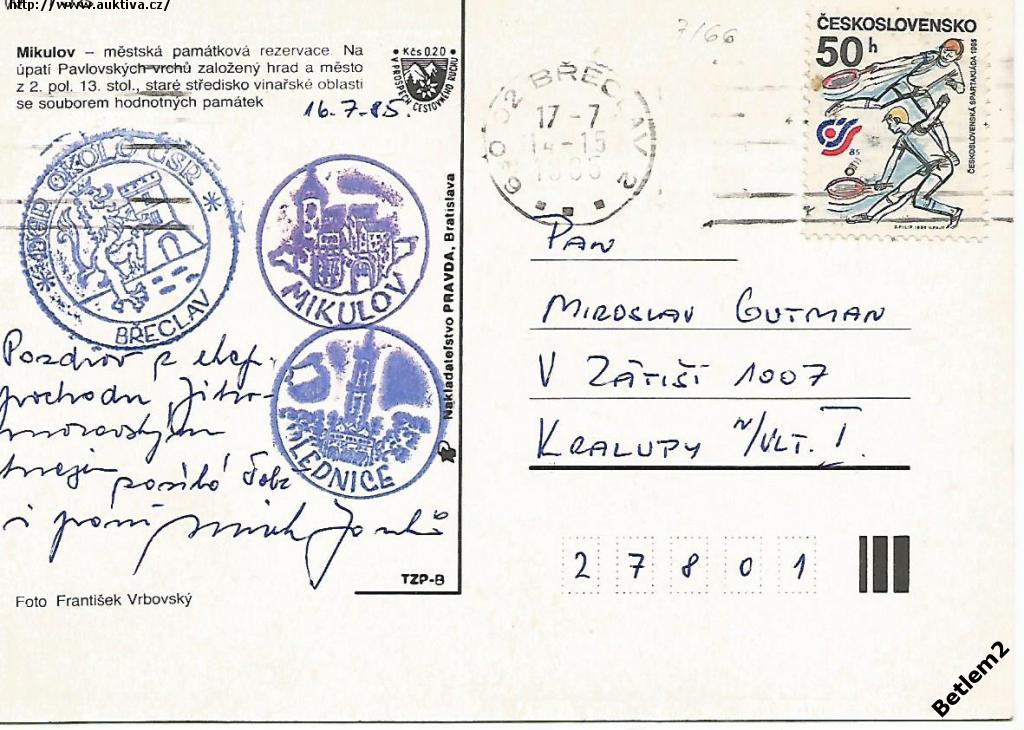 http://www.auktiva.cz/
Mikulov – městská památková rezervace. Na
úpatí Pavlovských vrchů založený hrad a město
z 2. pol. 13. stol., staré středisko vinařské oblasti
se souborem hodnotných památek
Kčs 0.20
V PROSPĚCH CESTOVNÍHO RUCHU
16.7.85.
7/66
690 02 BŘECLAV 2
17-7
14-15
1985
ČESKOSLOVENSKO
50 h
ČESKOSLOVENSKÁ SPARTAKIÁDA 1985
85
OKOLO ČSR
BŘECLAV
MIKULOV
LEDNICE
Nakladateľstvo PRAVDA, Bratislava
Pozdrav z
pochodu Jiho-
moravským
krajem posílá
PAN
MIROSLAV GUTMAN
V ZÁTIŠÍ 1007
KRALUPY N/VLT. I.
27801
TZP-B
Foto František Vrbovský
Betlem2